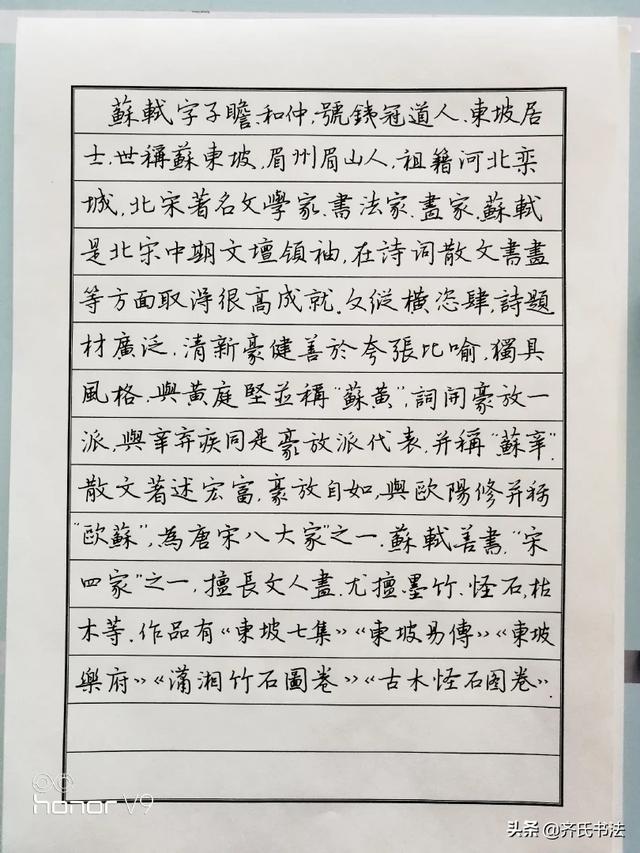 蘇軾字子瞻、和仲,號鉄冠道人、東坡居
士,世稱蘇東坡,眉州眉山人,祖籍河北栾
城,北宋著名文學家、書法家、畫家.蘇軾
是北宋中期文壇領袖,在詩词散文書畫
等方面取得很高成就.文縱橫恣肆,詩題
材廣泛.清新豪健善於夸張比喻,獨具
風格.與黃庭堅並稱“蘇黃”,詞開豪放一
派,與辛弃疾同是豪放派代表,并稱“蘇辛”.
散文著述宏富,豪放自如,與歐陽修并称
“欧蘇”,為唐宋八大家”之一.蘇軾善書,“宋
四家”之一,擅長文人畫.尤擅墨竹、怪石,枯
木等.作品有《東坡七集》《東坡易傳》《東坡
樂府》《瀟湘竹石圖卷》《古木怪石图卷》.
honor V9
头条 @齐氏书法